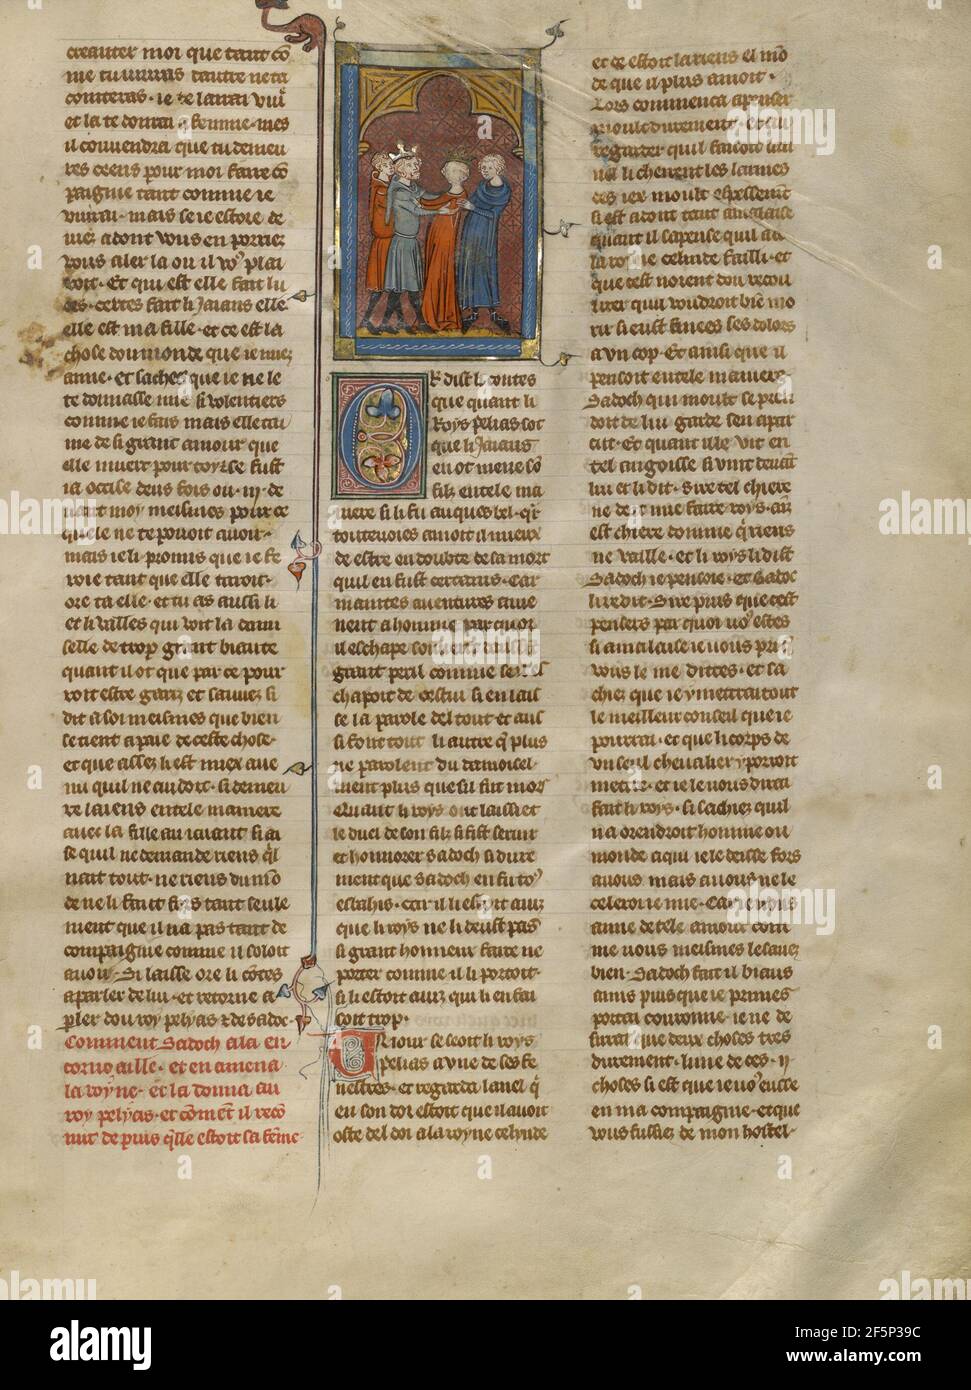 creanter moi que tant cō
me tu viuras
conteras · ie te larrai viure
et la te donrai a femme · mes
il couuendra que tu demeu
res ceens pour moi faire cō
paignie tant comme ie
viurai · mais se ie estoie de
uiez adont vous en porriez
vous aler la ou il vo9 plai
roit · Et qui est elle fait lu
ces · certes fait li Jaians elle
elle est ma fille · et ce est la
chose dou monde que ie miex
aime · et saches que ie ne le
te donnasse mie si volentiers
comme ie fais mais elle tai
me de si grant amour que
elle muert pour toy · se fust
ia occise deus fois ou · iij · de
uant moy meismes pour ce
quele ne te pouoit auoir ·
mais ie li promis que ie fe
roie tant que elle tauroit ·
ore ta elle · et tu as aussi li
et li valles qui voit la dami
selle de trop grant biaute
quant il ot que par ce pour
roit estre gariz et sauuez si
dit a soi meismes que bien
se tient a paie de ceste chose ·
et que assez li est miex aue
nu quil ne cuidoit · si demeu
re laiens en tele maniere
auec la fille au iaiant si ai
se quil ne demande riens ql
nait tout · ne riens du mō
de ne li faut fors tant seule
ment que il na pas tant de
compaignie comme il soloit
auoir · Si laisse ore li cōtes
a parler de lui · et retorne a
pler dou roy pelyas & de sadoc ·
Comment Sadoch ala en
cornoaille · et en amena
la royne · et la donna au
roy pelyas · et cōment il reco
nut depuis qlle estoit sa feme
OR dist li contes
que quant li
Roys pelias sot
que li Jaians
en ot mene sō
filz en tele ma
niere si li fu auques bel · qr
toutevoies amoit a mieux
de estre en doubte de sa mort
quil en fust certains · Car
maintes auentures auie
nent a homme par quoi
il eschape
grant peril comme
chapoit de cestui si en lais
se la parole del tout et aus
si font tout li autre q plus
ne parolent du damoisel
nient plus que sil fut mors
Quant li roys ot laissiet
le duel de son filz si fist seruir
et honnorer sadoch si dure
ment que sadoch en fu to9
esbahis · car il li estoit auiz
que li roys ne li deust pas
si grant honneur faire ne
porter comme il li portoit ·
si li estoit auiz qui li en fai
soit trop ·
UN iour se seoit li roys
pelias a une de ses fe
nestres · et regarda lanel q
en son doi estoit que il auoit
oste del doi a la royne celynde
et ce estoit la riens el mō
de que il plus amoit ·
Lors commenca a penser
moult durement · et en
regarder quil faisoit lan
nel li chieent les larmes
des iex moult espessement
si est adont tant amalaise
quant il sapense quil a a
la royne celinde failli · et
que cest noient dou recou
urer quil voudroit bie mo
rir si eust finees ses dolors
a un cop · Et ainsi que il
pensoit en tele maniere ·
Sadoch qui moult se pren
doit de lui garde sen apar
cut · Et quant ille vit en
tel angoisse si vint deuant
lui et li dit · Sire tel chiere
ne doit mie faire roys · car
est chiere domme qi riens
ne vaille · et li roys li dist
Sadoch ie pensoie · et sadoc
li redit · Sire puis que cest
pensers par quoi vo9 estes
si amalaise ie vous pri
vous le me dittes · et sa
chiez que ie y mettrai tout
le meilleur conseil que ie
pourrai · et que li corps de
un seul cheualier y porroit
mettre · et ie le vous dirai
fait li roys · si sachiez quil
na orendroit homme ou
monde a qui ie le deisse fors
a vous mais a vous ne le
celeroie mie · Car ie vous
aime de tele amour com
me vous meismes le sauez
bien · Sadoch fait il biaus
amis puis que ie primes
portai couronne · ie ne de
sirai que deux choses tres
durement · lune de ces · ij
choses si est que ie vo9 eusse
en ma compaignie · et que
vous fussiez de mon hostel ·
alamy
Image ID: 2F5P39C
www.alamy.com